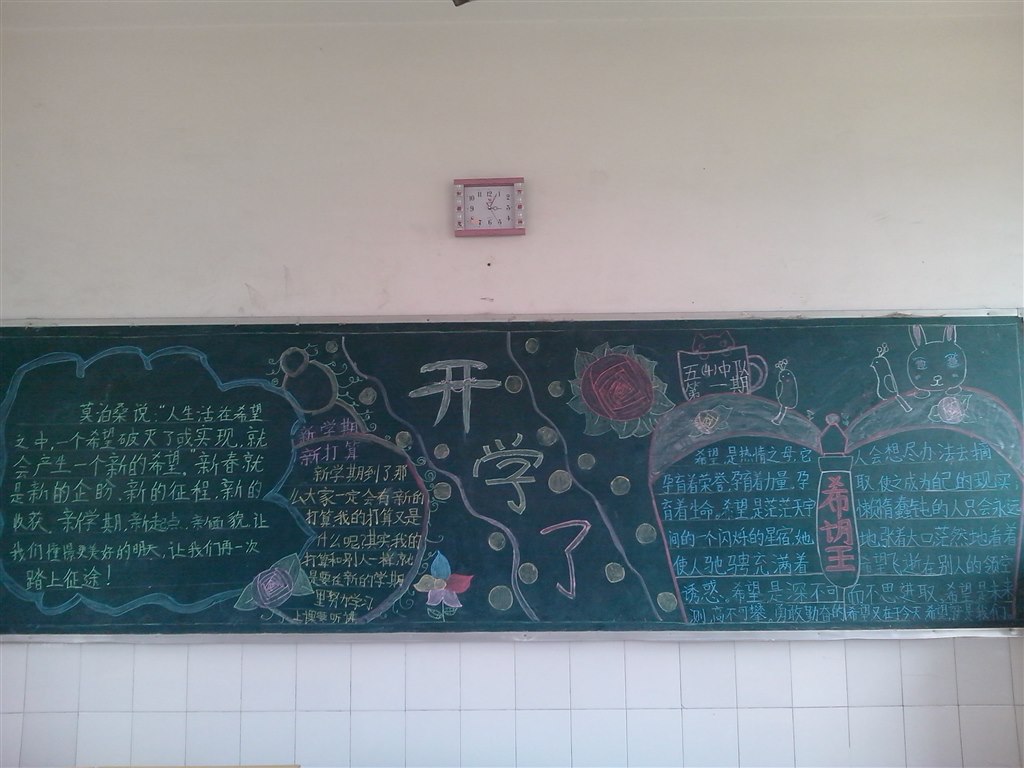 莫泊桑说:“人生活在希望
之中,一个希望破灭了或实现,就
会产生一个新的希望。”新春就
是新的企盼、新的征程、新的
收获。新学期,新起点,新面貌,让
我们憧憬更美好的明天,让我们再一次
踏上征途!
新学期
新打算
新学期到了那
么大家一定会有新的
打算我的打算又是
什么呢其实我的
打算和别人一样,就
是要在新的学期
里努力学习
上课要听讲
开
学
了
五(4)中队
第一期
希望是热情之母,它
孕育着荣誉,孕育着力量,孕
育着生命。希望是茫茫天宇
间的一个闪烁的星宿,她
使人驰骋,充满着
诱惑。希望是深不可
测,高不可攀。勇敢勤奋的
希望王
人会想尽办法去摘
取,使之成为自己的现实
懒惰蠢钝的人只会永远
地张着大口茫然地看着
希望飞逝在别人的领空
而不思进取。希望是未来
希望又在于今天希望就是我们
12
11
1
10
2
9
3
8
4
7
6
5